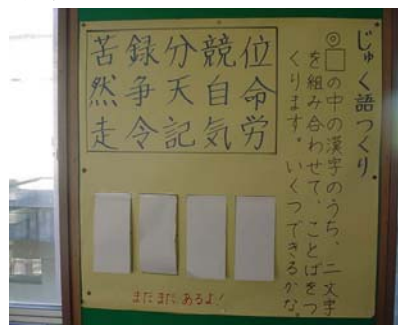 じゅく語つくり
◎□の中の漢字のうち、二文字
を組み合わせて、ことばをつ
くります。いくつできるかな。
位命労
競自気
分天記
録争令
苦然走
まだまだあるよ!